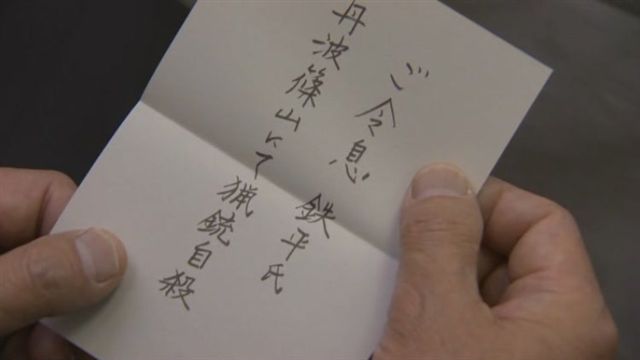 ご令息 鉄平氏
丹波篠山にて猟銃自殺